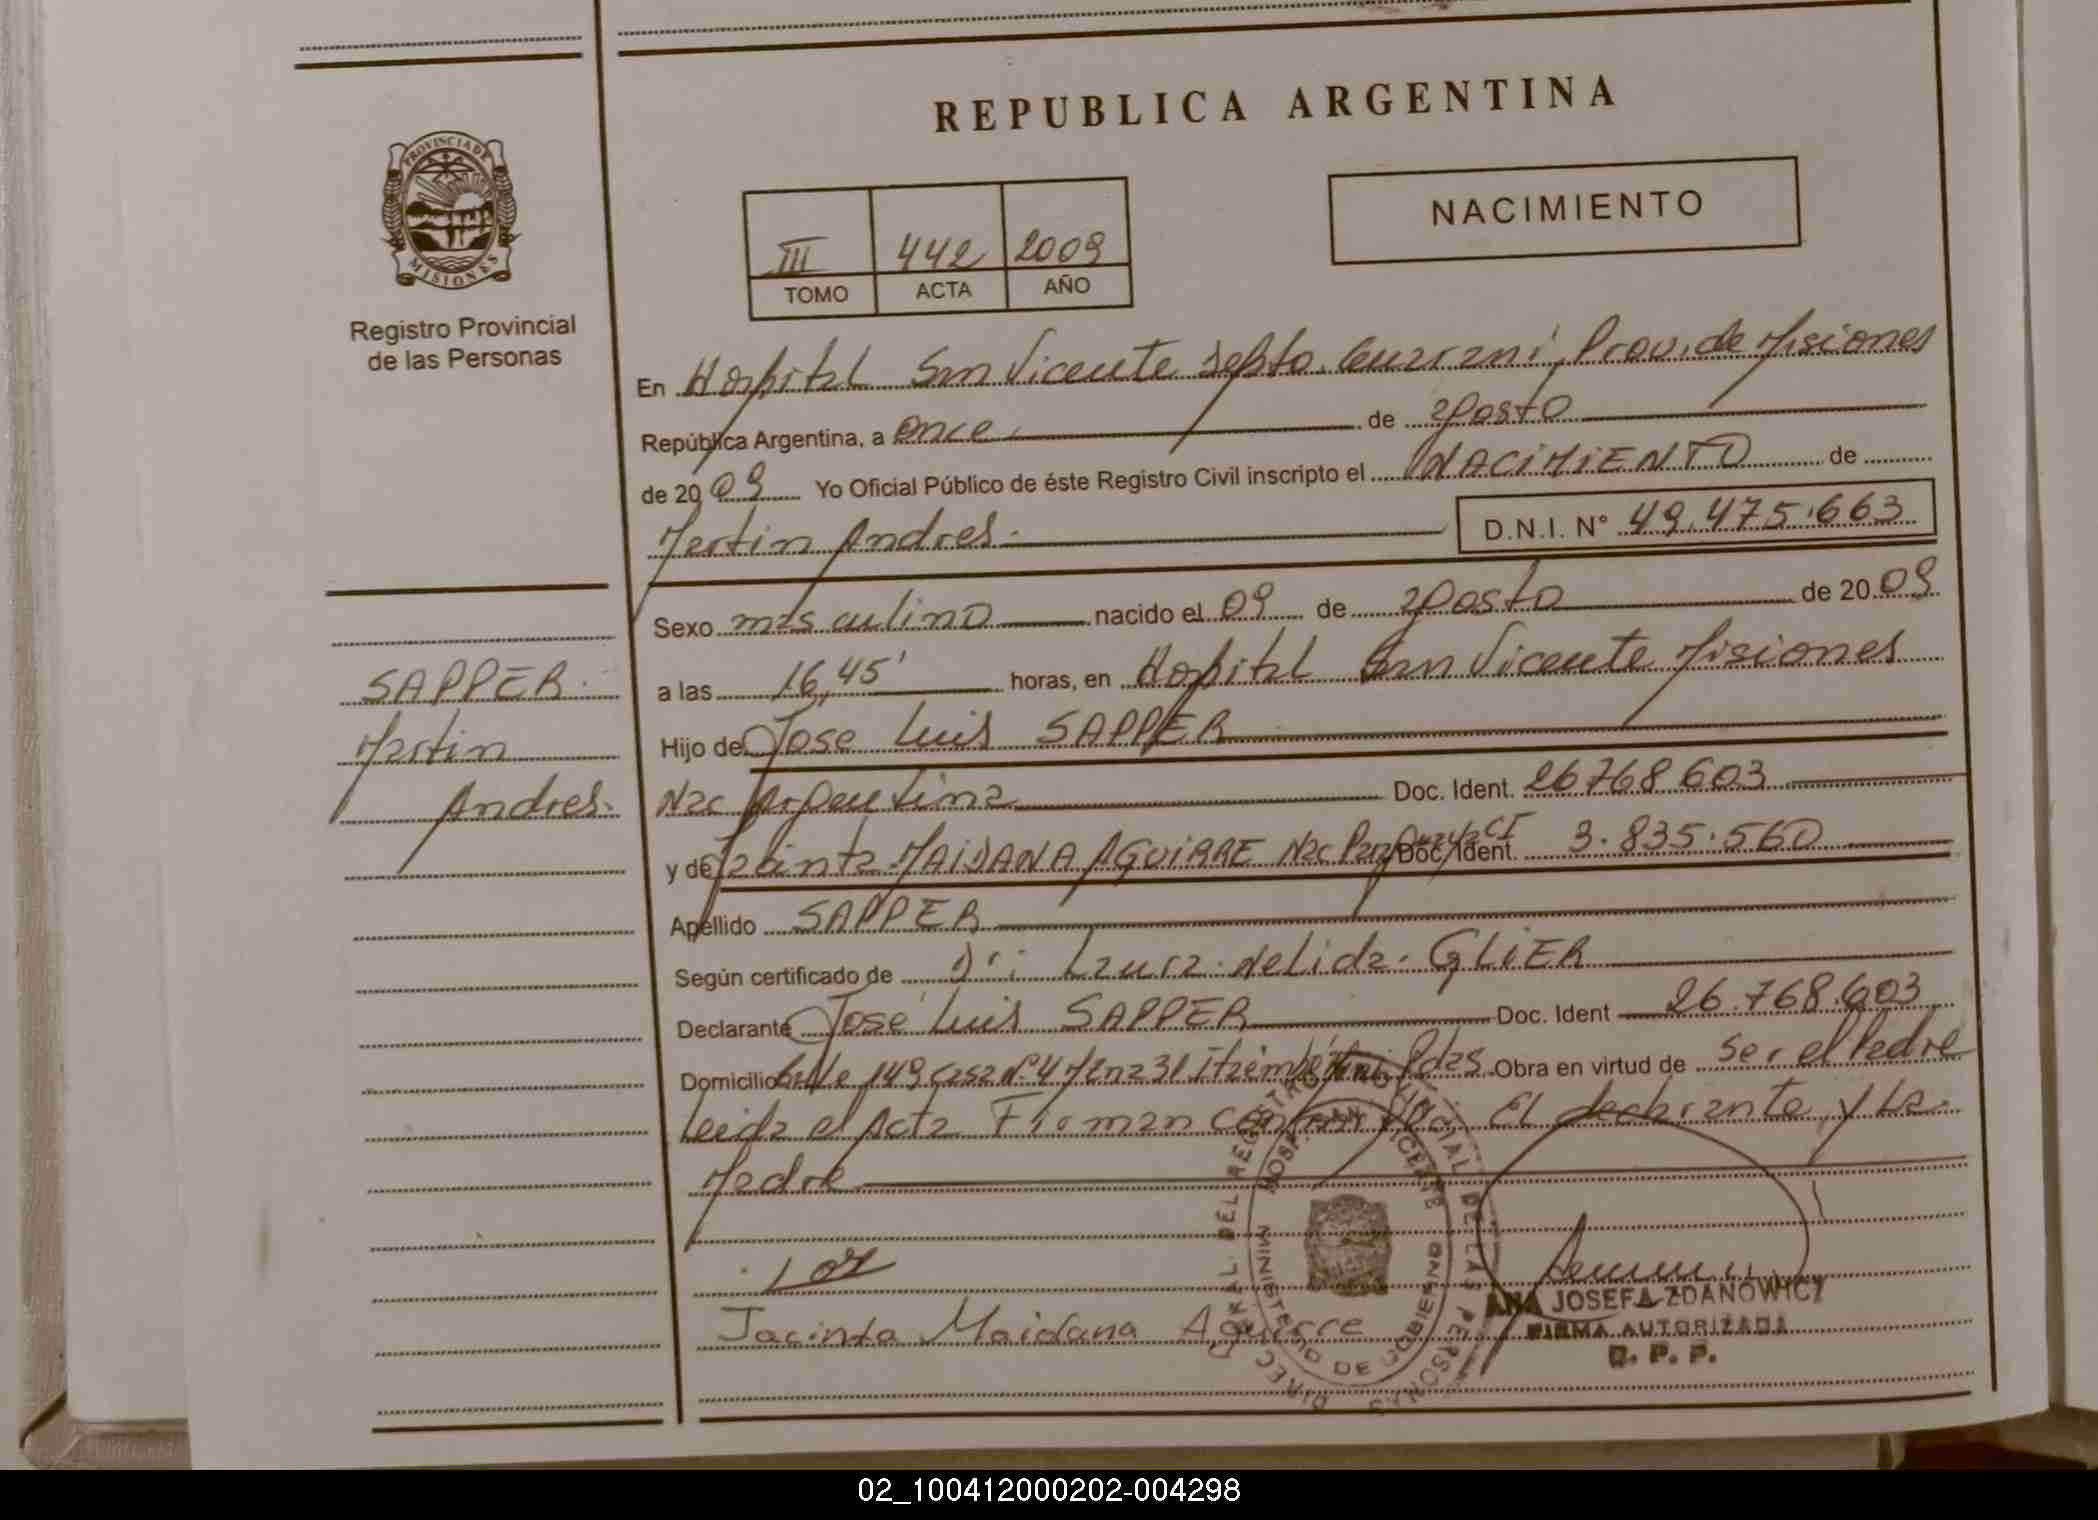 REPUBLICA ARGENTINA
PROVINCIA DE
MISIONES
Registro Provincial
de las Personas
III 442 2009
TOMO ACTA AÑO
NACIMIENTO
En Hospital San Vicente Depto. Guarani, Prov. de Misiones
República Argentina, a once de agosto
de 2009 Yo Oficial Público de éste Registro Civil inscripto el NACIMIENTO de
Martin Andres.
D.N.I. N° 49.475.663
Sexo masculino nacido el 09 de agosto de 2009
a las 16,45' horas, en Hospital San Vicente Misiones
Hijo de Jose Luis SAPPER
Nac Argentina Doc. Ident. 26768603
y de Jacinta MAIDANA AGUIRRE Nac Paraguaya CI Doc. Ident. 3.835.560
Apellido SAPPER
Según certificado de Dr: Laura Nelida GLIER
Declarante José Luis SAPPER Doc. Ident 26.768.603
Domicilio Calle 149 casa N° 4 Manza 31 Itaembé Mini Pdas Obra en virtud de ser el Padre
Leida el Acta Firman El declarante y La
Madre
SAPPER
Martin
Andres.
Jacinta Maidana Aguirre
DIREC. GRAL. DEL REGISTRO PROVINCIAL DE LAS PERSONAS
HOSP. SAN VICENTE
MINISTERIO DE GOBIERNO
ANA JOSEFA ZDANOWICZ
FIRMA AUTORIZADA
R. P. P.
02_100412000202-004298